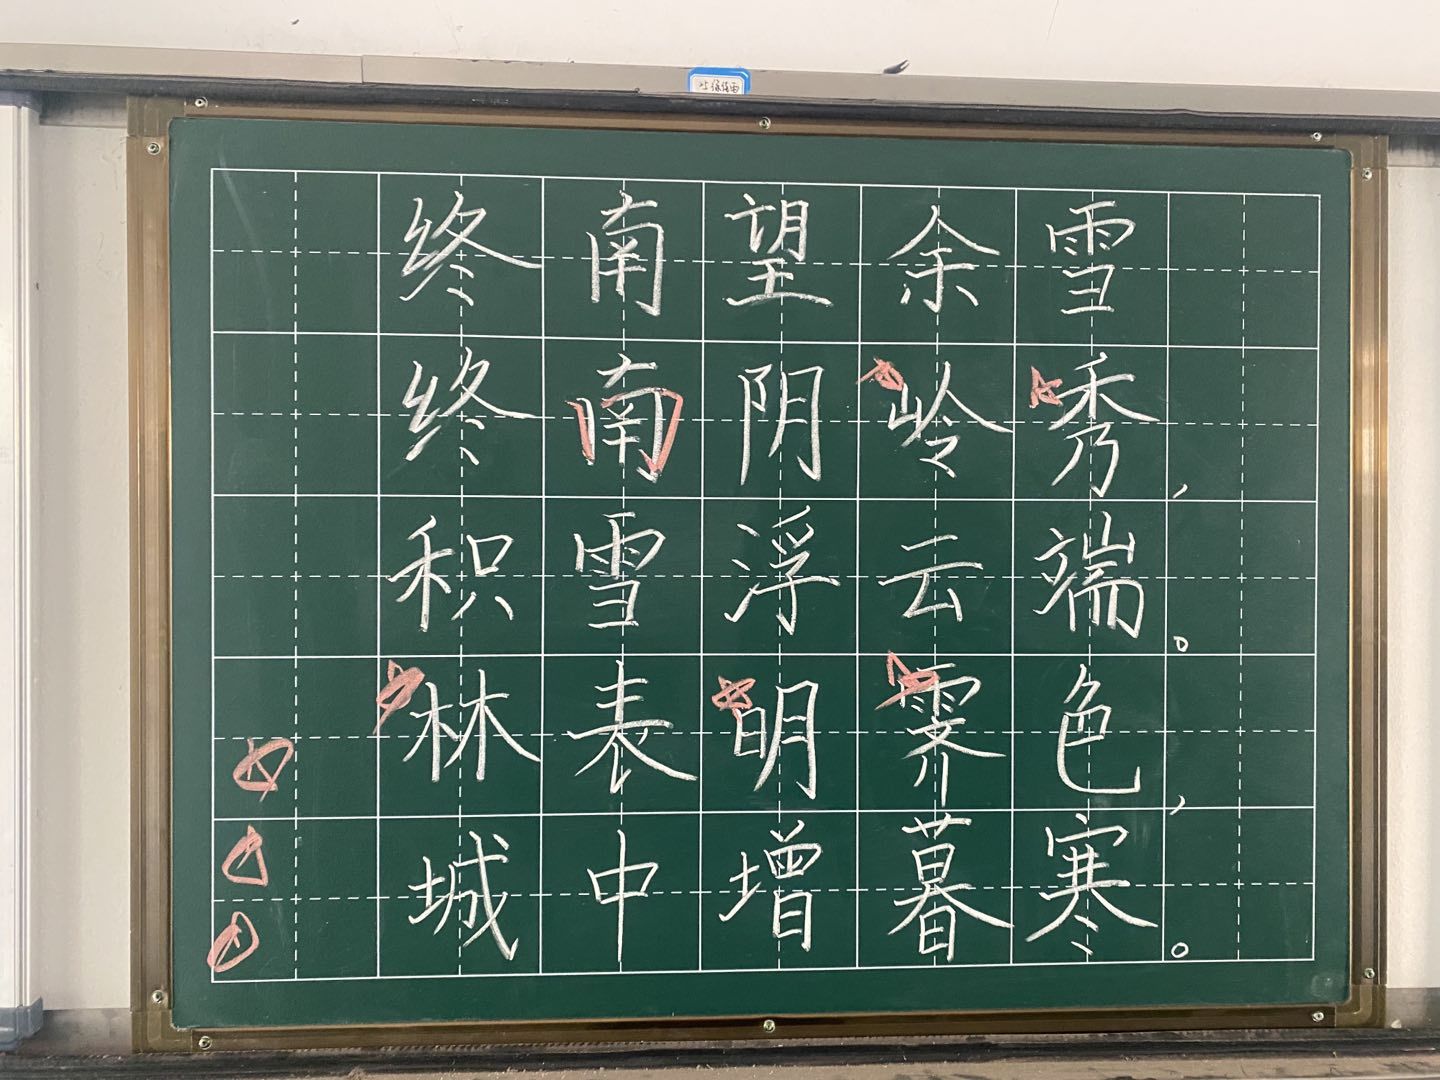 终南望余雪
终南阴岭秀,
积雪浮云端。
林表明霁色,
城中增暮寒。